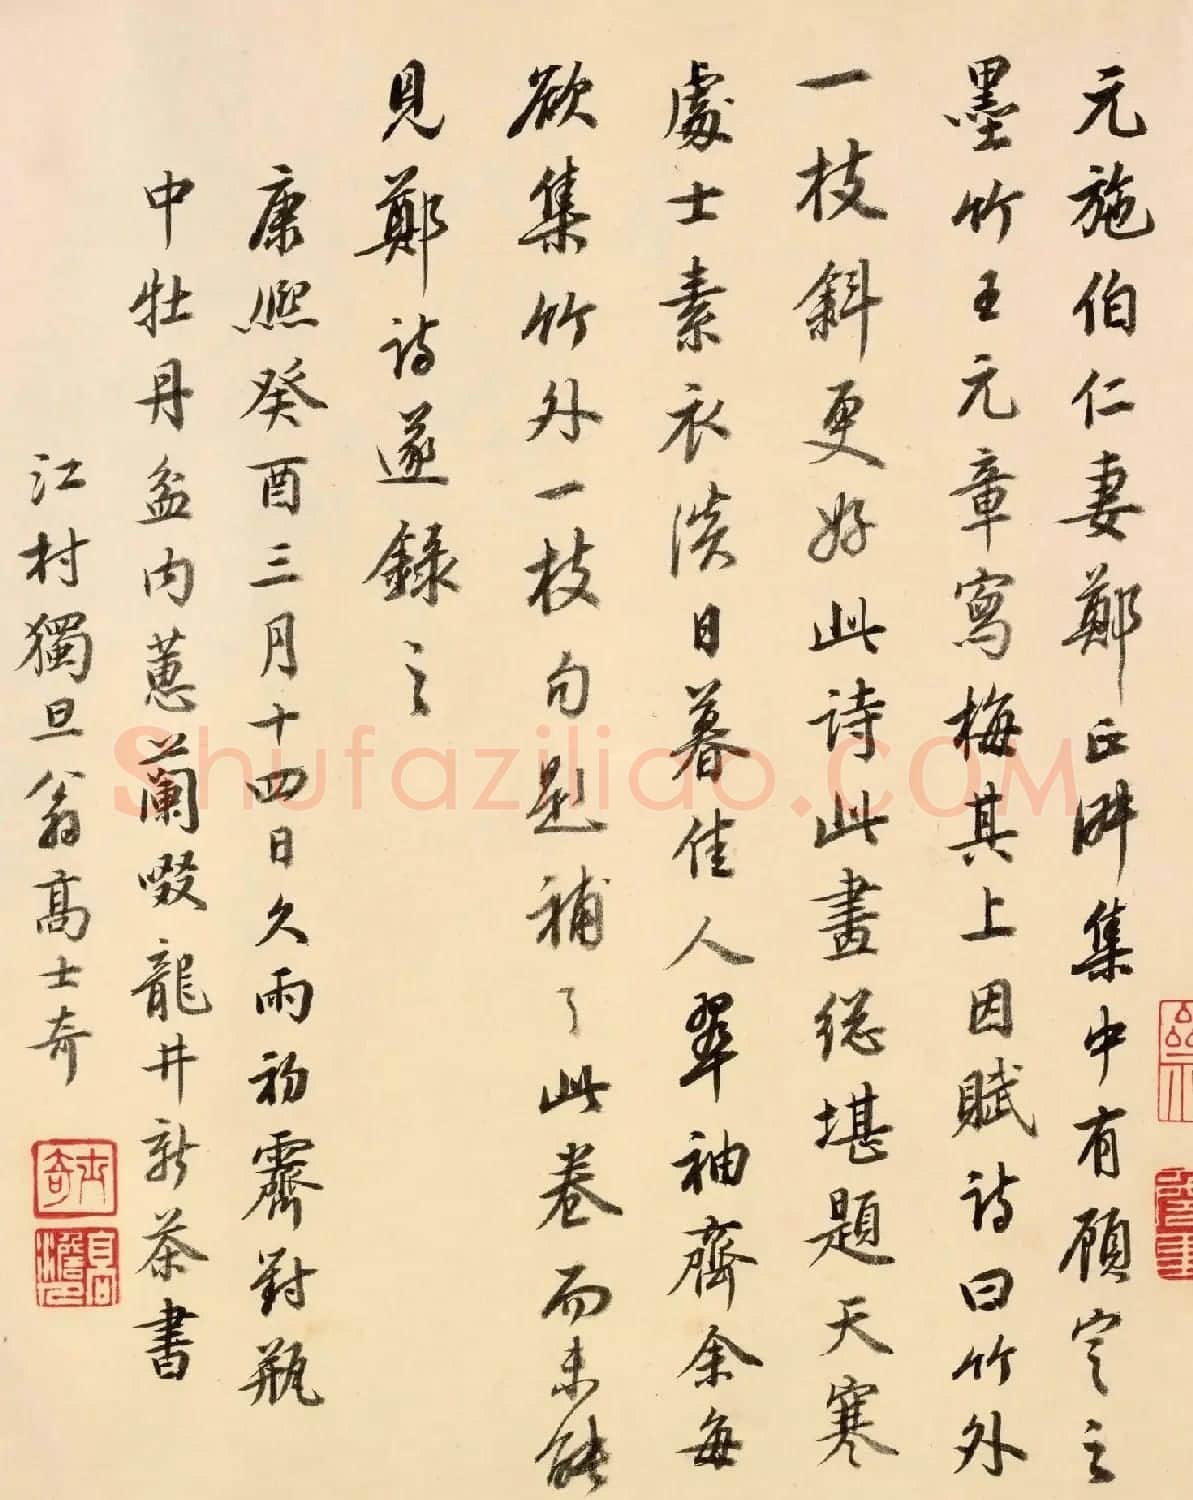 元施伯仁妻鄭正淑集中有顧定之
墨竹王元章寫梅其上因賦詩曰竹外
一枝斜更好此詩此畫總堪題天寒
處士素衣淡日暮佳人翠袖齊余每
欲集竹外一枝句題補之此卷而未能
見鄭詩遂錄之
康熙癸酉三月十四日久雨初霽對瓶
中牡丹盆內蕙蘭啜龍井新茶書
江村獨旦翁高士奇
士奇
高澹人
Shufaziliao.COM